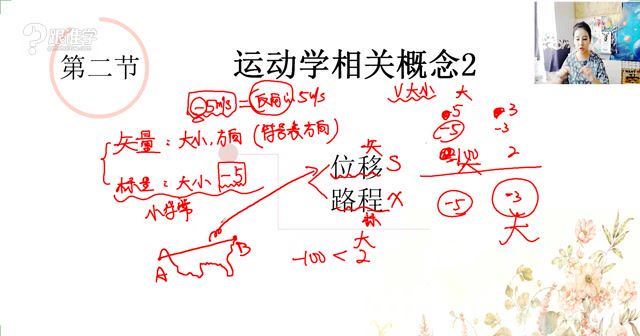 跟谁学
第二节
运动学相关概念2
-5m/s = 反向的5m/s
矢量：大小，方向（符号表方向）
标量：大小 -5
小学学
矢
位移 S
路程 x
标
A
B
大
-100 < 2
V大小 大
5 3
-5 -3
-100 2
-5 -3
大